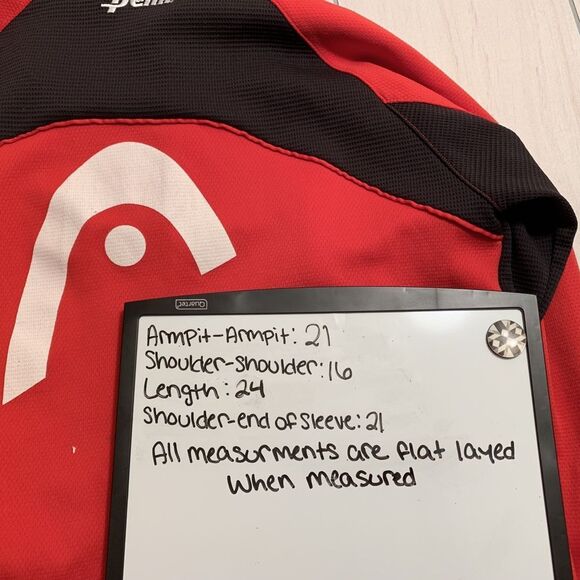 Quartet
Armpit-Armpit: 21
Shoulder-Shoulder: 16
Length: 24
Shoulder-end of Sleeve: 21
All measurments are flat layed
when measured